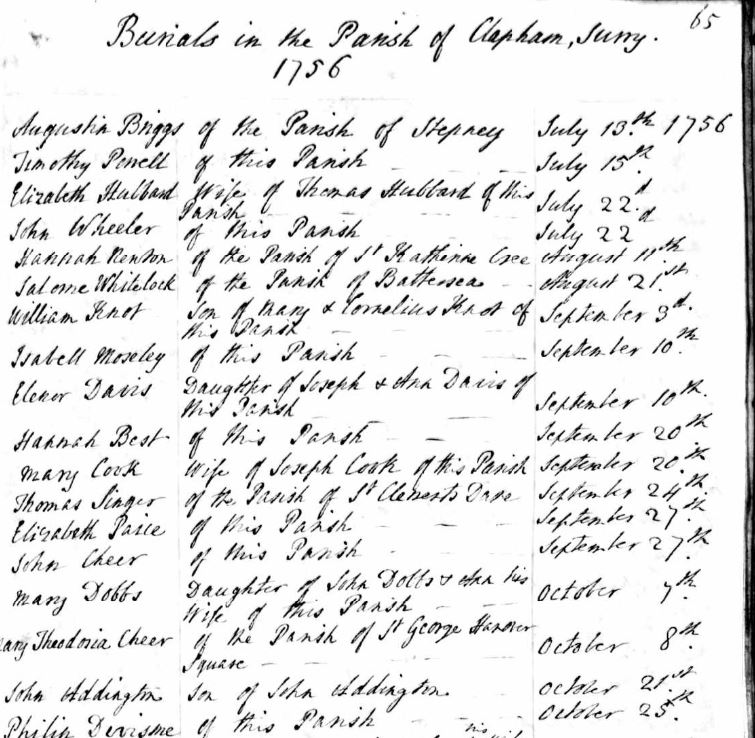 65
Burials in the Parish of Clapham, Surry.
1756
Augustin Briggs of the Parish of Stepney July 13th 1756
Timothy Powell of this Parish July 15th
Elizabeth Hubbard Wife of Thomas Hubbard of this
Parish July 22d
John Wheeler of this Parish July 22d
Hannah Renton of the Parish of St Katherine Cree August 11th
Salome Whitelock of the Parish of Battersea August 21st
William Knot Son of Mary & Cornelius Knot of
this Parish September 3d
Isabell Moseley of this Parish September 10th
Elenor Davis Daughter of Joseph & Ann Davis of
this Parish September 10th
Hannah Best of this Parish September 20th
Mary Cook Wife of Joseph Cook of this Parish September 20th
Thomas Singer of the Parish of St Clements Dane September 24th
Elizabeth of this Parish September 27th
John Cheer of this Parish September 27th
Mary Dobbs Daughter of John Dobbs & Ann his
Wife of this Parish October 7th
Mary Theodosia Cheer of the Parish of St George Hanover
Square October 8th
John Addington Son of John Addington October 21st
Philip Devisme of this Parish October 25th
his